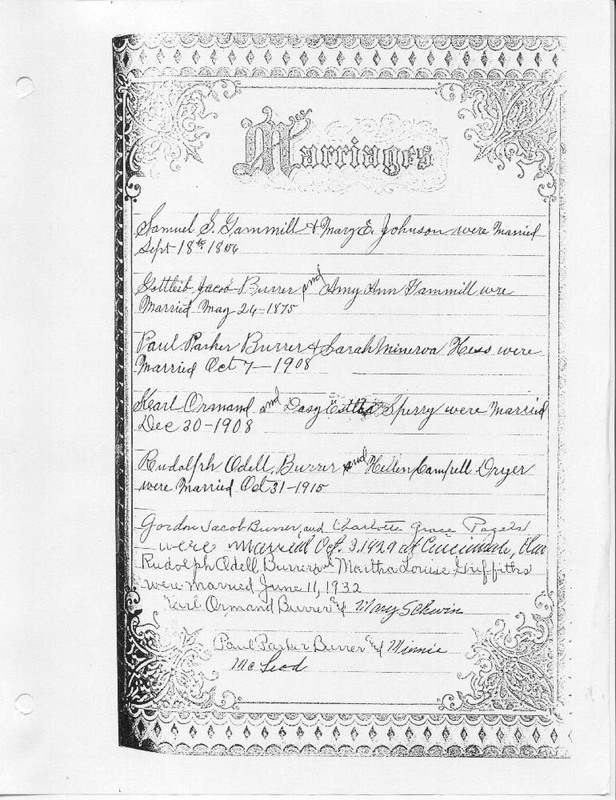 Marriages
Samuel S. Gammill & Mary E. Johnson were Married
Sept 18th 1856
Gottlieb Jacob Burrer and Amy Ann Gammill were
Married May 26-1875
Paul Parker Burrer & Sarah Minerva Hess were
Married Oct 7-1908
Karl Ormand and Dasy Sperry were Married
Dec 30-1908
Rudolph Odell Burrer and Hellen Campell Dryer
were Married Oct 31-1915
Gordon Jacob Burrer, and Charlotte Grace Pagels
were married Oct. 3, 1929 at Cincinnati, Ohio
Rudolph Odell Burrer and Martha Louise Griffiths
were married June 11, 1932
Karl Ormand Burrer & Mary Schwin
Paul Parker Burrer & Minnie
Mc Leod